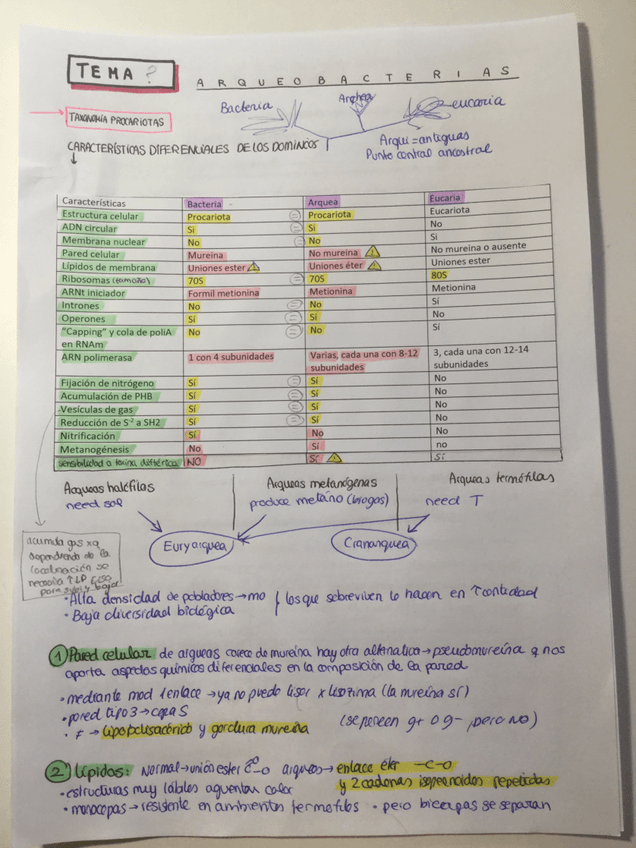 TEMA ?
ARQUEOBACTERIAS
Bacteria Archea eucaria
TAXONOMÍA PROCARIOTAS
Arqui = antiguas
CARACTERÍSTICAS DIFERENCIALES DE LOS DOMINIOS
Punto control ancestral
Características Bacteria Arquea Eucaria
Estructura celular Procariota = Procariota Eucariota
ADN circular Si = Si No
Membrana nuclear No = No Si
Pared celular Mureina No mureina No mureina o ausente
Lípidos de membrana Uniones ester Uniones éter Uniones ester
Ribosomas (tamaño) 70S = 70S 80S
ARNt iniciador Formil metionina Metionina Metionina
Intrones No = No Sí
Operones Sí = Sí No
"Capping" y cola de poliA No = No Sí
en RNAm
ARN polimerasa 1 con 4 subunidades Varias, cada una con 8-12 3, cada una con 12-14
subunidades subunidades
Fijación de nitrógeno Sí = Sí No
Acumulación de PHB Sí = Sí No
Vesículas de gas Sí = Sí No
Reducción de S-2 a SH2 Sí = Sí No
Nitrificación Sí No No
Metanogénesis No Sí no
sensibilidad a toxina diftérica NO Sí Sí
Arqueas halófilas Arqueas metanógenas Arqueas termófilas
need sal produce metano (biogas) need T
Euryarquea Crenarquea
acumula gas xq
dependiendo de la
localización se
necesita ↑↓P
para subir y bajar
· Alta densidad de pobladores → mo los que sobreviven lo hacen en ↑cantidad
· Baja diversidad biológica
1 Pared celular de arqueas carece de mureina hay otra alternativa → pseudomureina q nos
aporta aspectos químicos diferenciales en la composición de la pared
· mediante mod 1 enlace → ya no puedo lisar x lisozima (la mureina sí)
· pared tipo 3 → capa S (se parecen g+ o g-, pero NO)
· ≠ → lipopolisacárido y gordura mureina
2 Lípidos: Normal → unión ester C-O arqueas → enlace éter -C-O
· estructuras muy lábiles aguantan calor y 2 cadenas isoprenoides repetidas
· monocapas → resistente en ambientes termofilos · pero bicapas se separan